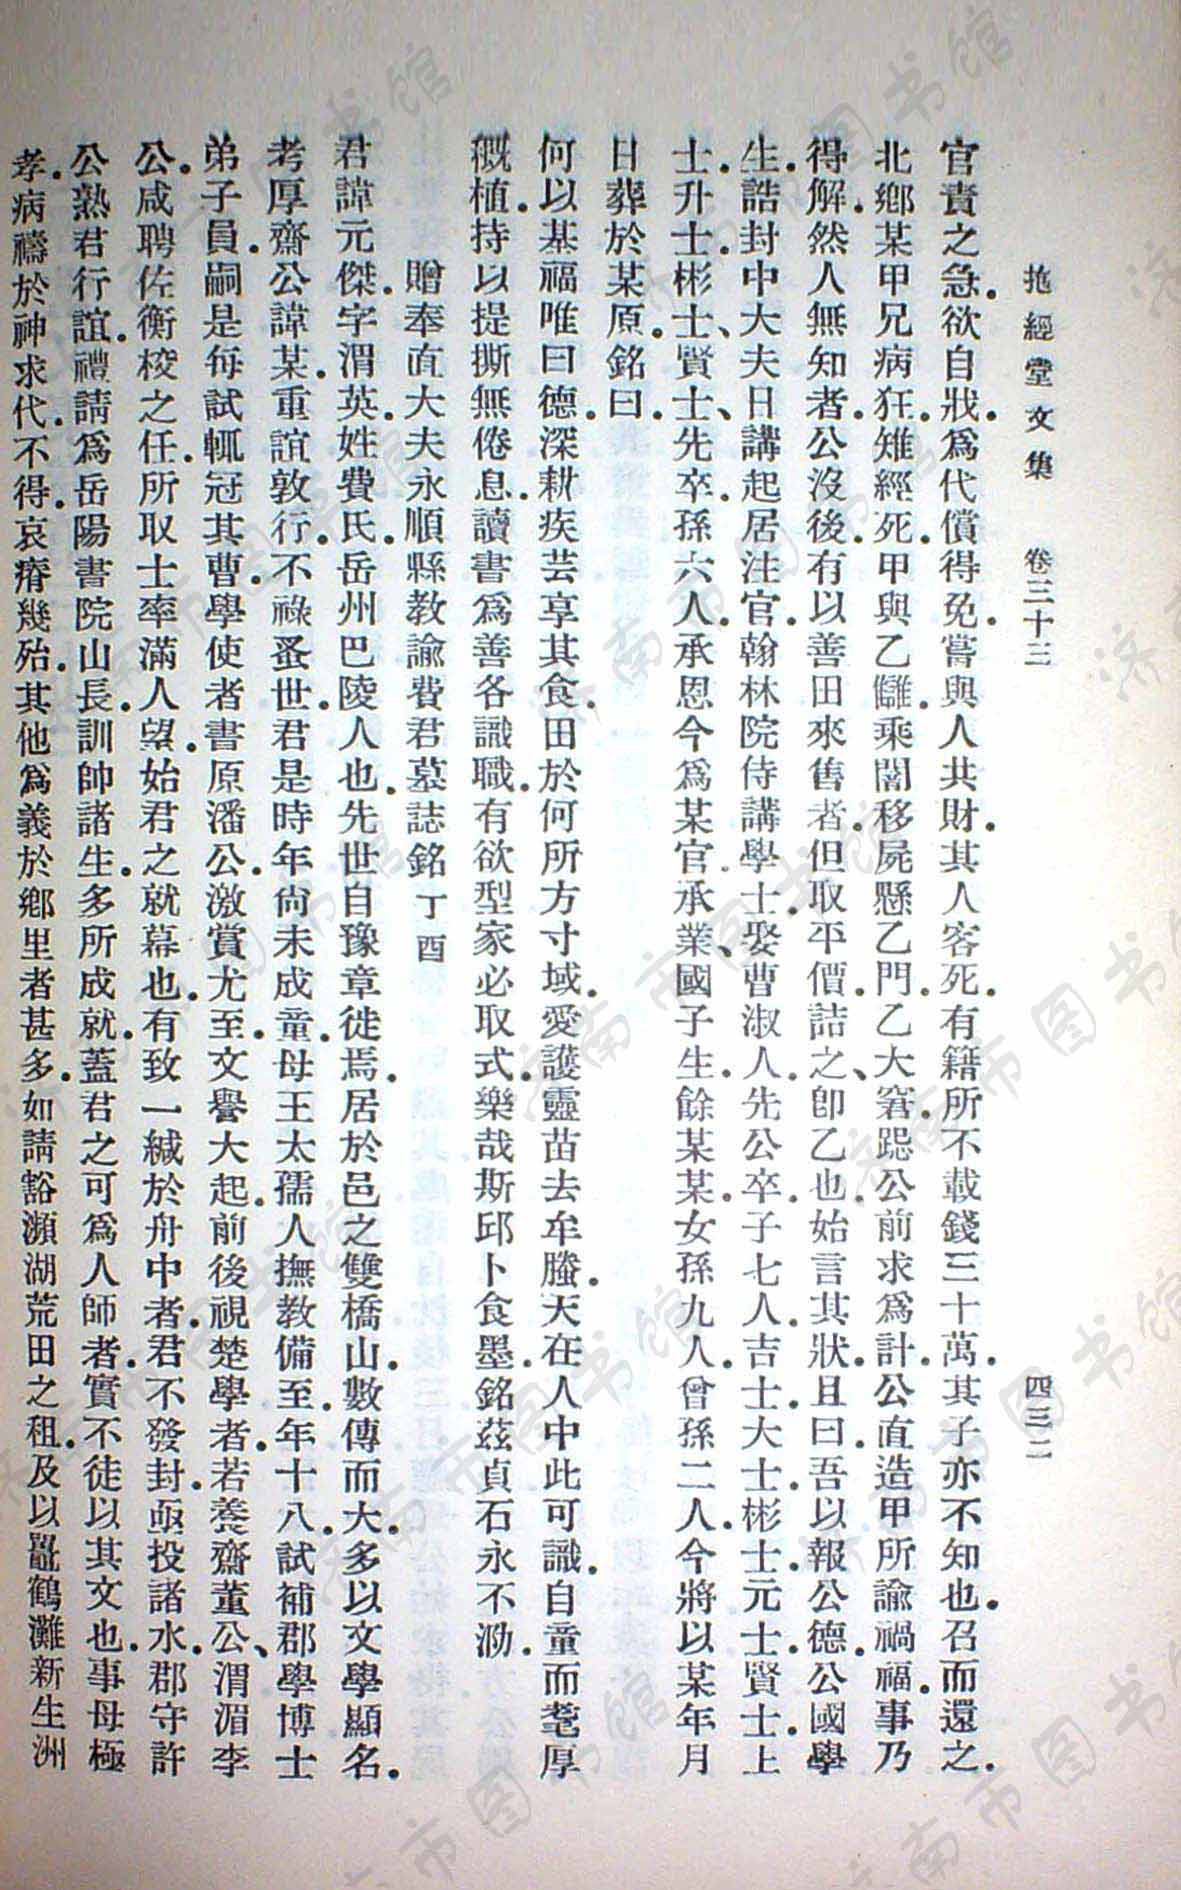 抱經堂文集　卷三十三　四三二
官責之急。欲自狀。爲代償得免。嘗與人共財。其人客死。有籍所不載錢三十萬。其子亦不知也。召而還之。
北鄉某甲兄病狂。雉經死。甲與乙讎。乘闇移屍懸乙門。乙大窘。跽公前求爲計。公直造甲所諭禍福。事乃
得解。然人無知者。公沒後。有以善田來售者。但取平價。詰之、卽乙也。始言其狀。且曰。吾以報公德。公國學
生。誥封中大夫日講起居注官。翰林院侍講學士。娶曹淑人。先公卒。子七人。吉士。大士。彬士。元士。賢士。上
士。升士。彬士、賢士、先卒。孫六人。承恩今爲某官。承業、國子生。餘某某。女孫九人。曾孫二人。今將以某年月
日葬於某原。銘曰。
何以基福唯曰德。深耕疾芸享其食。田於何所方寸域。愛護靈苗去牟螣。天在人中此可識。自童而耄厚
穊植。持以提撕無倦息。讀書爲善各識職。有欲型家必取式。樂哉斯邱卜食墨。銘茲貞石永不泐。
贈奉直大夫永順縣教諭費君墓誌銘丁酉
君諱元傑。字渭英。姓費氏。岳州巴陵人也。先世自豫章徙焉。居於邑之雙橋山。數傳而大。多以文學顯名。
考厚齋公諱某。重誼敦行。不祿蚤世。君是時年尙未成童。母王太孺人撫教備至。年十八。試補郡學博士
弟子員。嗣是每試輒冠其曹。學使者書原潘公。激賞尤至。文譽大起。前後視楚學者。若養齋董公、渭湄李
公。咸聘佐衡校之任。所取士率滿人望。始君之就幕也。有致一緘於舟中者。君不發封。亟投諸水。郡守許
公熟君行誼。禮請爲岳陽書院山長。訓帥諸生。多所成就。蓋君之可爲人師者。實不徒以其文也。事母極
孝。病禱於神求代。不得。哀瘠幾殆。其他爲義於鄉里者甚多。如請豁瀕湖荒田之租。及以鼌鶴灘新生洲